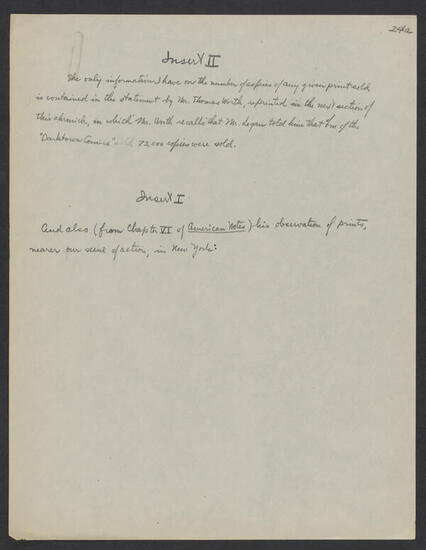 24a
Insert II
The only information I have on the number of copies of any given print sold
is contained in the statement by Mr. Thomas Worth, reprinted in the next section of
this chronicle, in which Mr. Worth recalls that Mr. Logan told him that of one of the
"Darktown Comics" 73,000 copies were sold.
Insert I
And also (from Chapter VI of American Notes) his observation of prints,
nearer our scene of action, in New York: